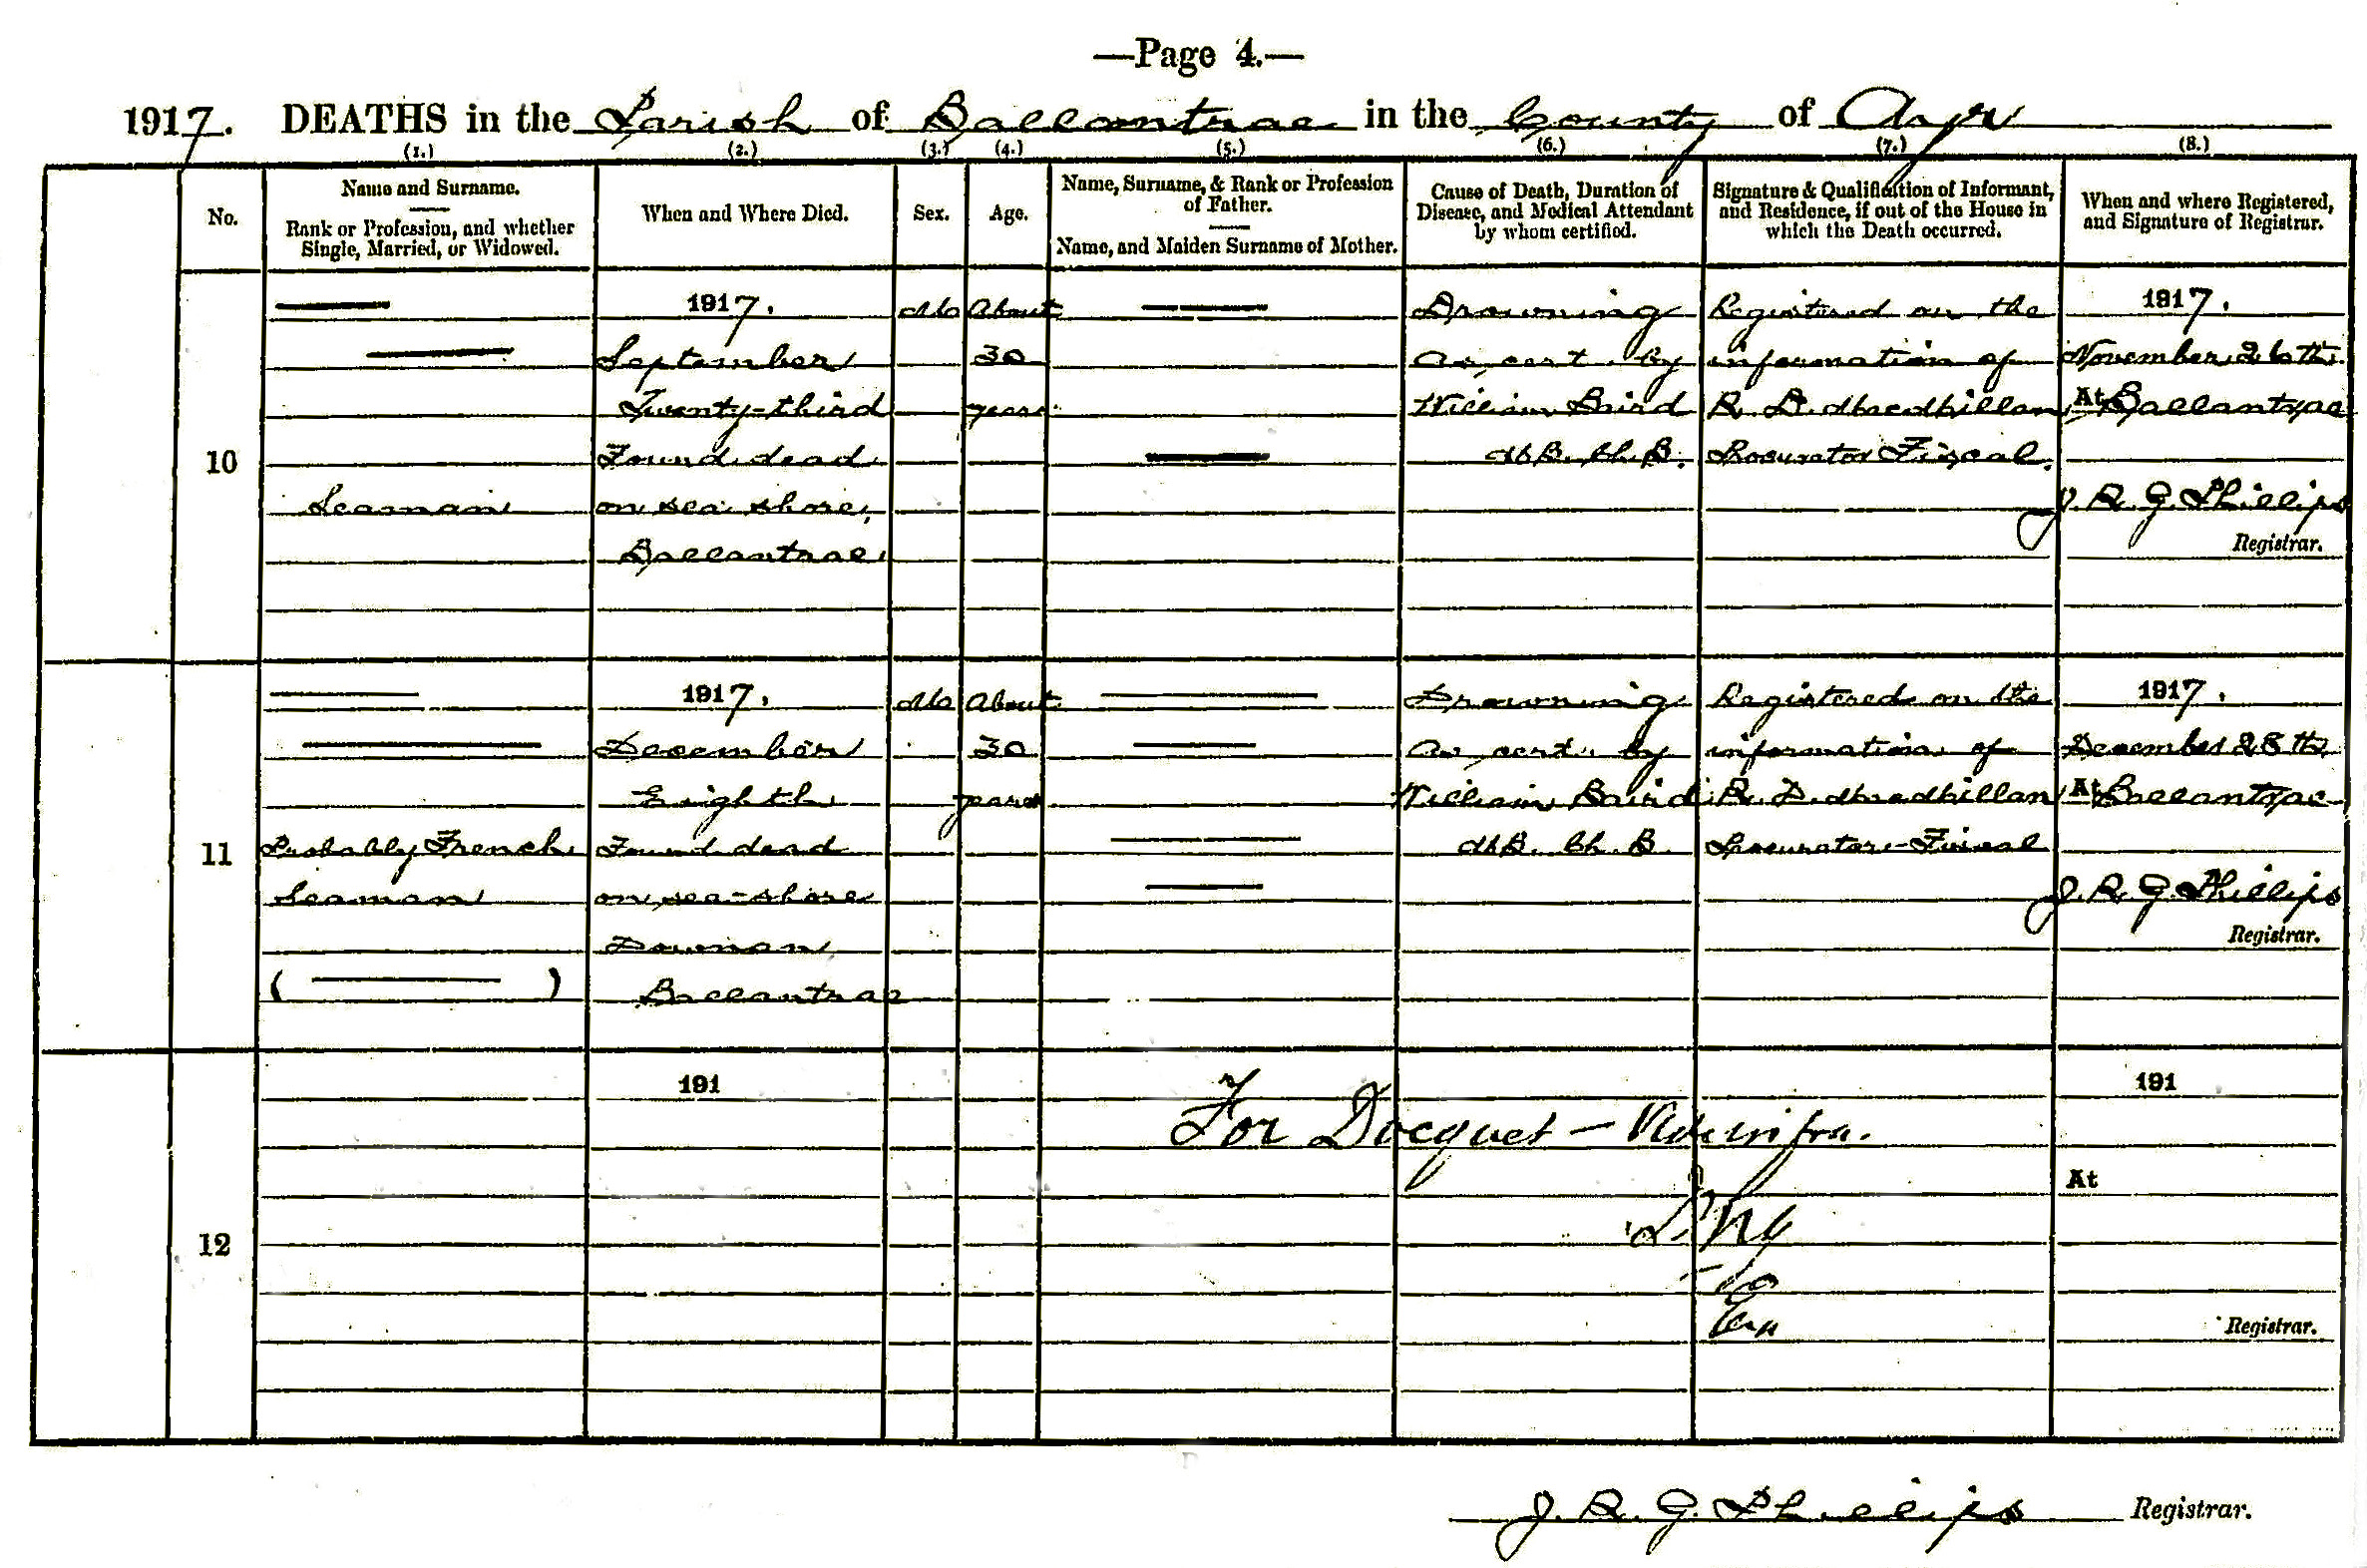 —Page 4.—
1917. DEATHS in the Parish of Ballantrae in the County of Ayr
(1.) (2.) (3.) (4.) (5.) (6.) (7.) (8.)
No.
Name and Surname.
Rank or Profession, and whether
Single, Married, or Widowed.
When and Where Died.
Sex.
Age.
Name, Surname, & Rank or Profession
of Father.
Name, and Maiden Surname of Mother.
Cause of Death, Duration of
Disease, and Medical Attendant
by whom certified.
Signature & Qualification of Informant,
and Residence, if out of the House in
which the Death occurred.
When and where Registered,
and Signature of Registrar.
10
Seaman
1917.
September
Twenty-third
Found dead
on sea shore,
Ballantrae
M
About
30
years
Drowning
As cert. by
William Baird
M.B. Ch. B.
Registered on the
information of
R. D.
Procurator Fiscal.
1917.
November 26th
At Ballantrae
J. R. G. Phillips
Registrar.
11
Probably French
Seaman
( )
1917.
December
Eighth
Found dead
on sea-shore
Downan
Ballantrae
M
About
30
years
Drowning
As cert. by
William Baird
M.B. Ch. B.
Registered on the
information of
R. D.
Procurator-Fiscal
1917.
December 28th
At Ballantrae
J. R. G. Phillips
Registrar.
12
191
For Docquet — Vide infra.
191
At
Registrar.
J. R. G. Phillips Registrar.